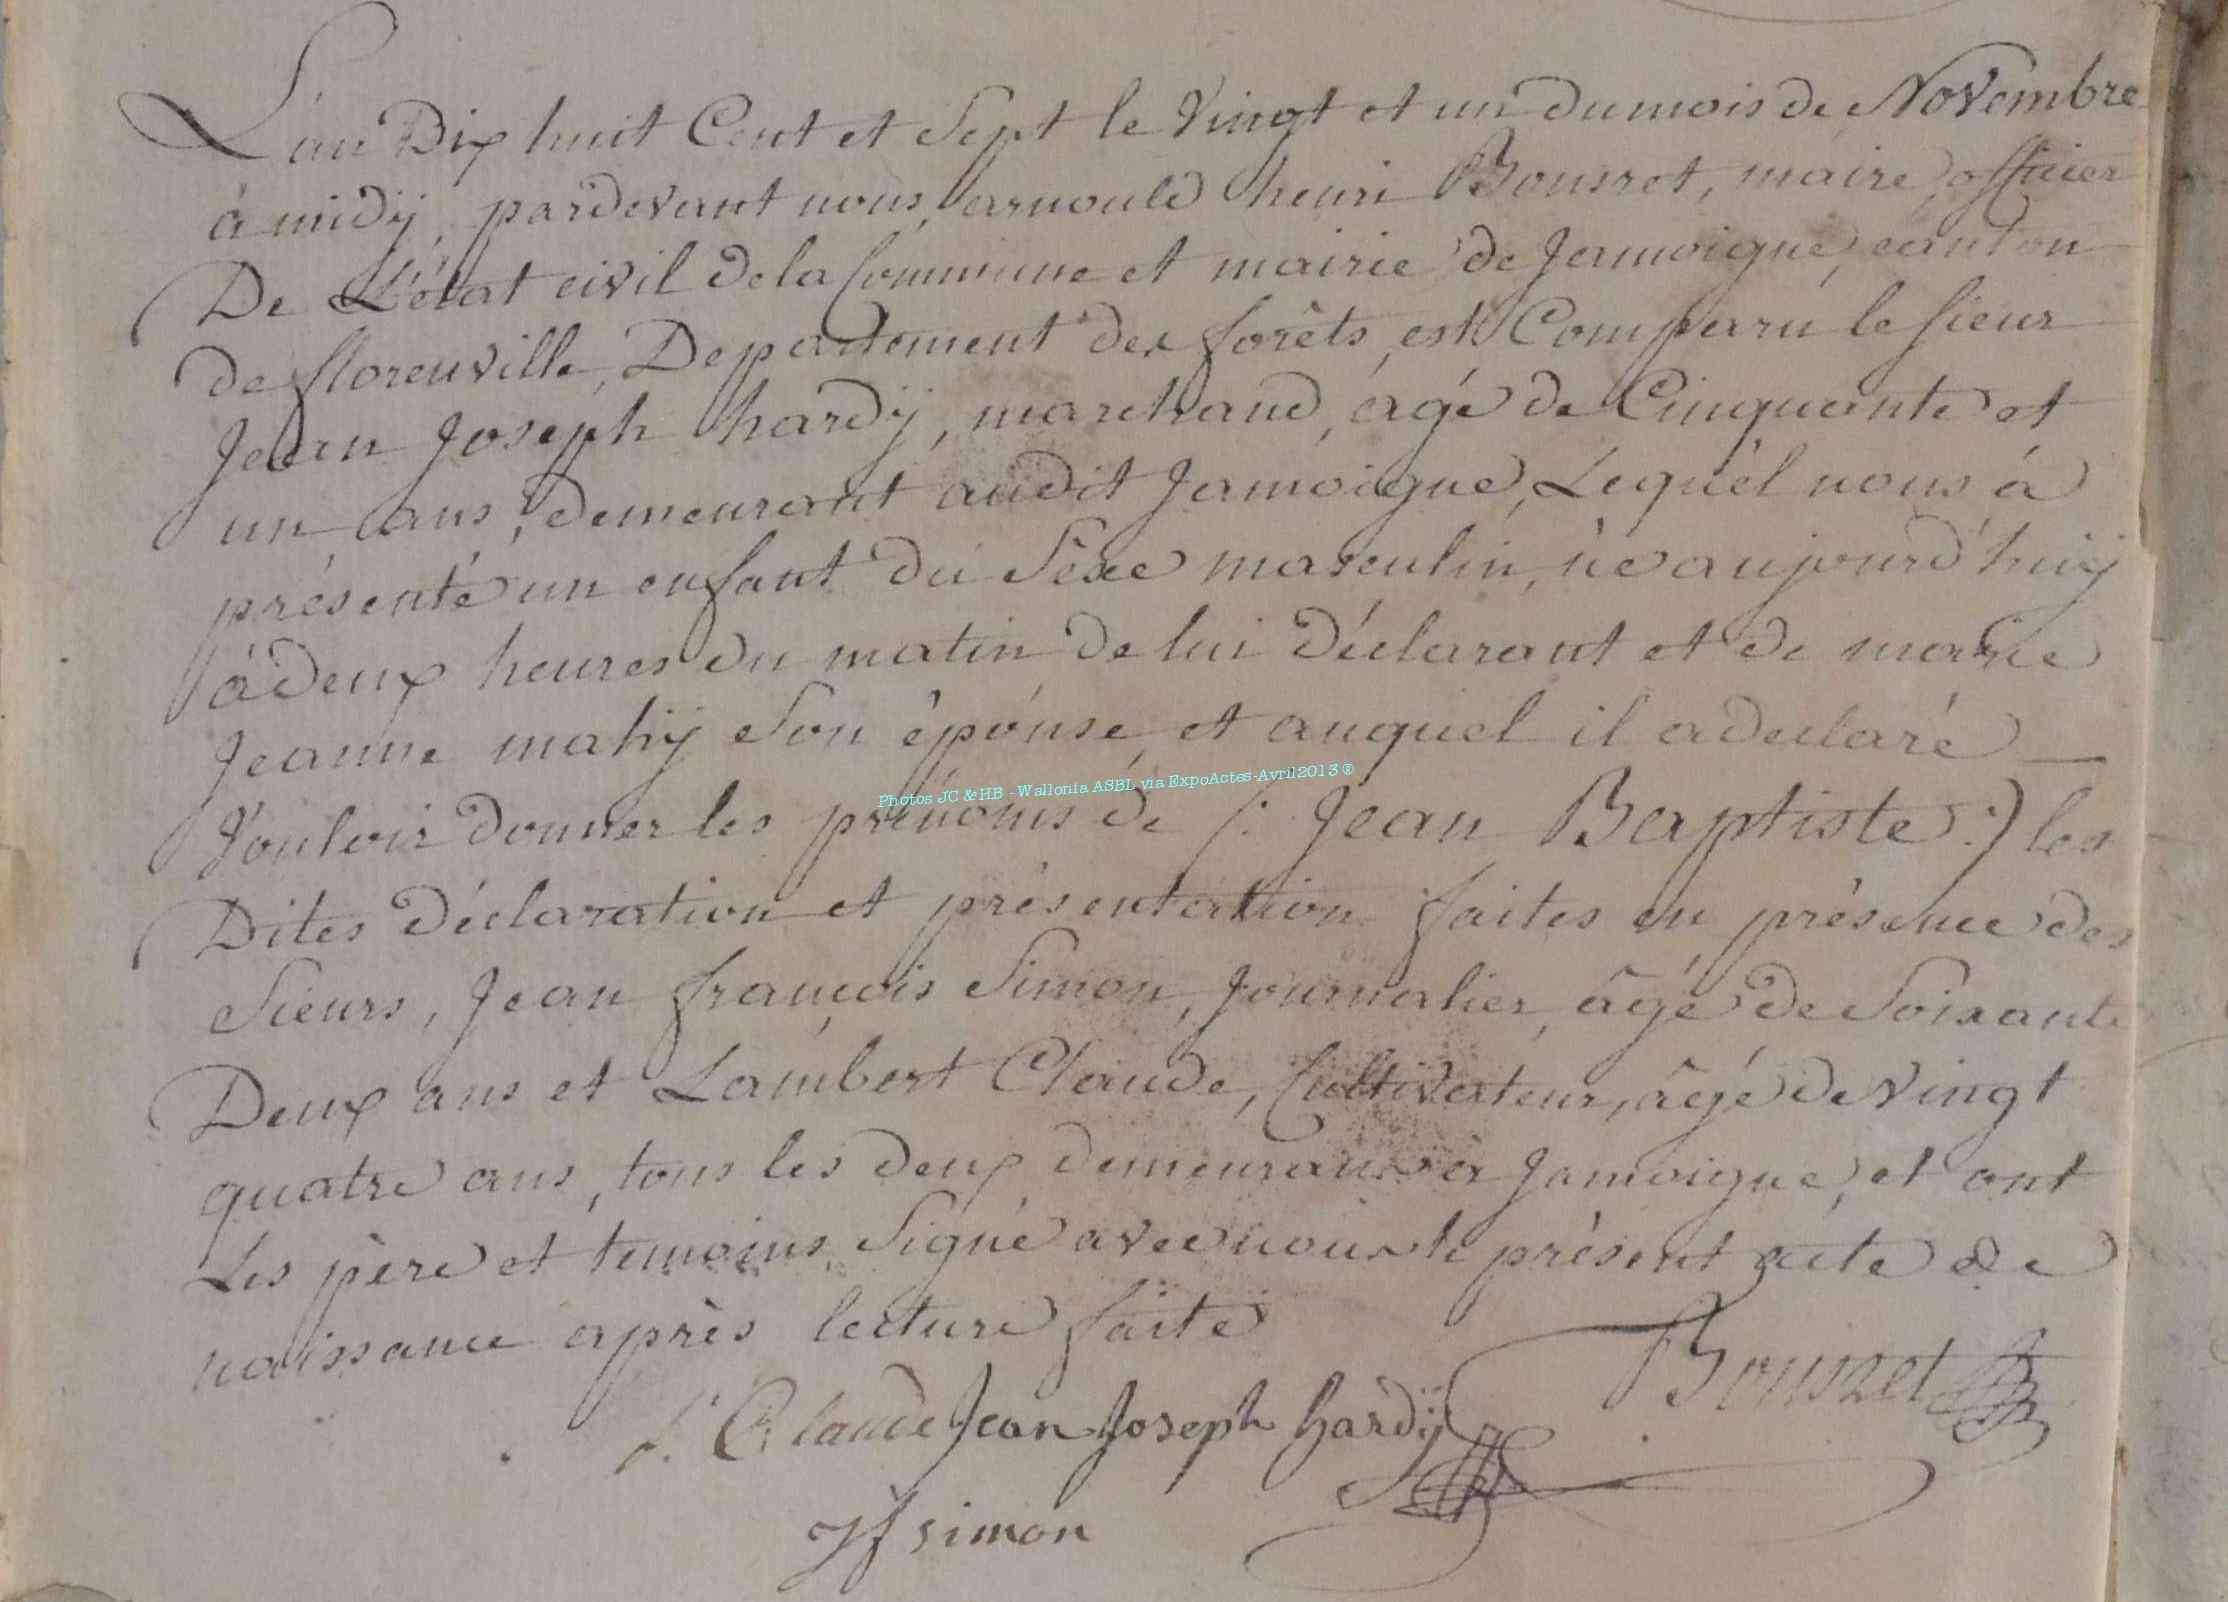 L'an Dix huit Cent et Sept le Vingt et un du mois de Novembre
à midÿ, pardevant nous, arnould henri Bousret, maire, officier
De L'état civil de la Commune et mairie de Jamoigne, canton
de florenville, Departement des forêts, est Comparu le sieur
Jean Joseph hardÿ, marchand, agé de Cinquante et
un ans, demeurant audit Jamoigne, Lequel nous à
présenté un enfant du Sèxe masculin, né aujourd'huij
à deux heures du matin de lui déclarant et de marie
Jeanne mahÿ son épouse, et auquel il a déclaré
Vouloir donner les prénoms de (: Jean Baptiste :) les
Dites déclaration et présentation faites en présence des
Sieurs, Jean françois Simon, Journalier, âgé de Soixante
Deux ans et Lambert Claude, Cultivateur, âgé de Vingt
quatre ans, tous les deux demeurans à Jamoigne, et ont
Les père et temoins Signé avec nous le présent acte de
naissance après lecture faite
Photos JC & HB - Wallonia ASBL via ExpoActes-Avril2013 ®
Bousret
l. Claude Jean Joseph hardÿ
Jf simon